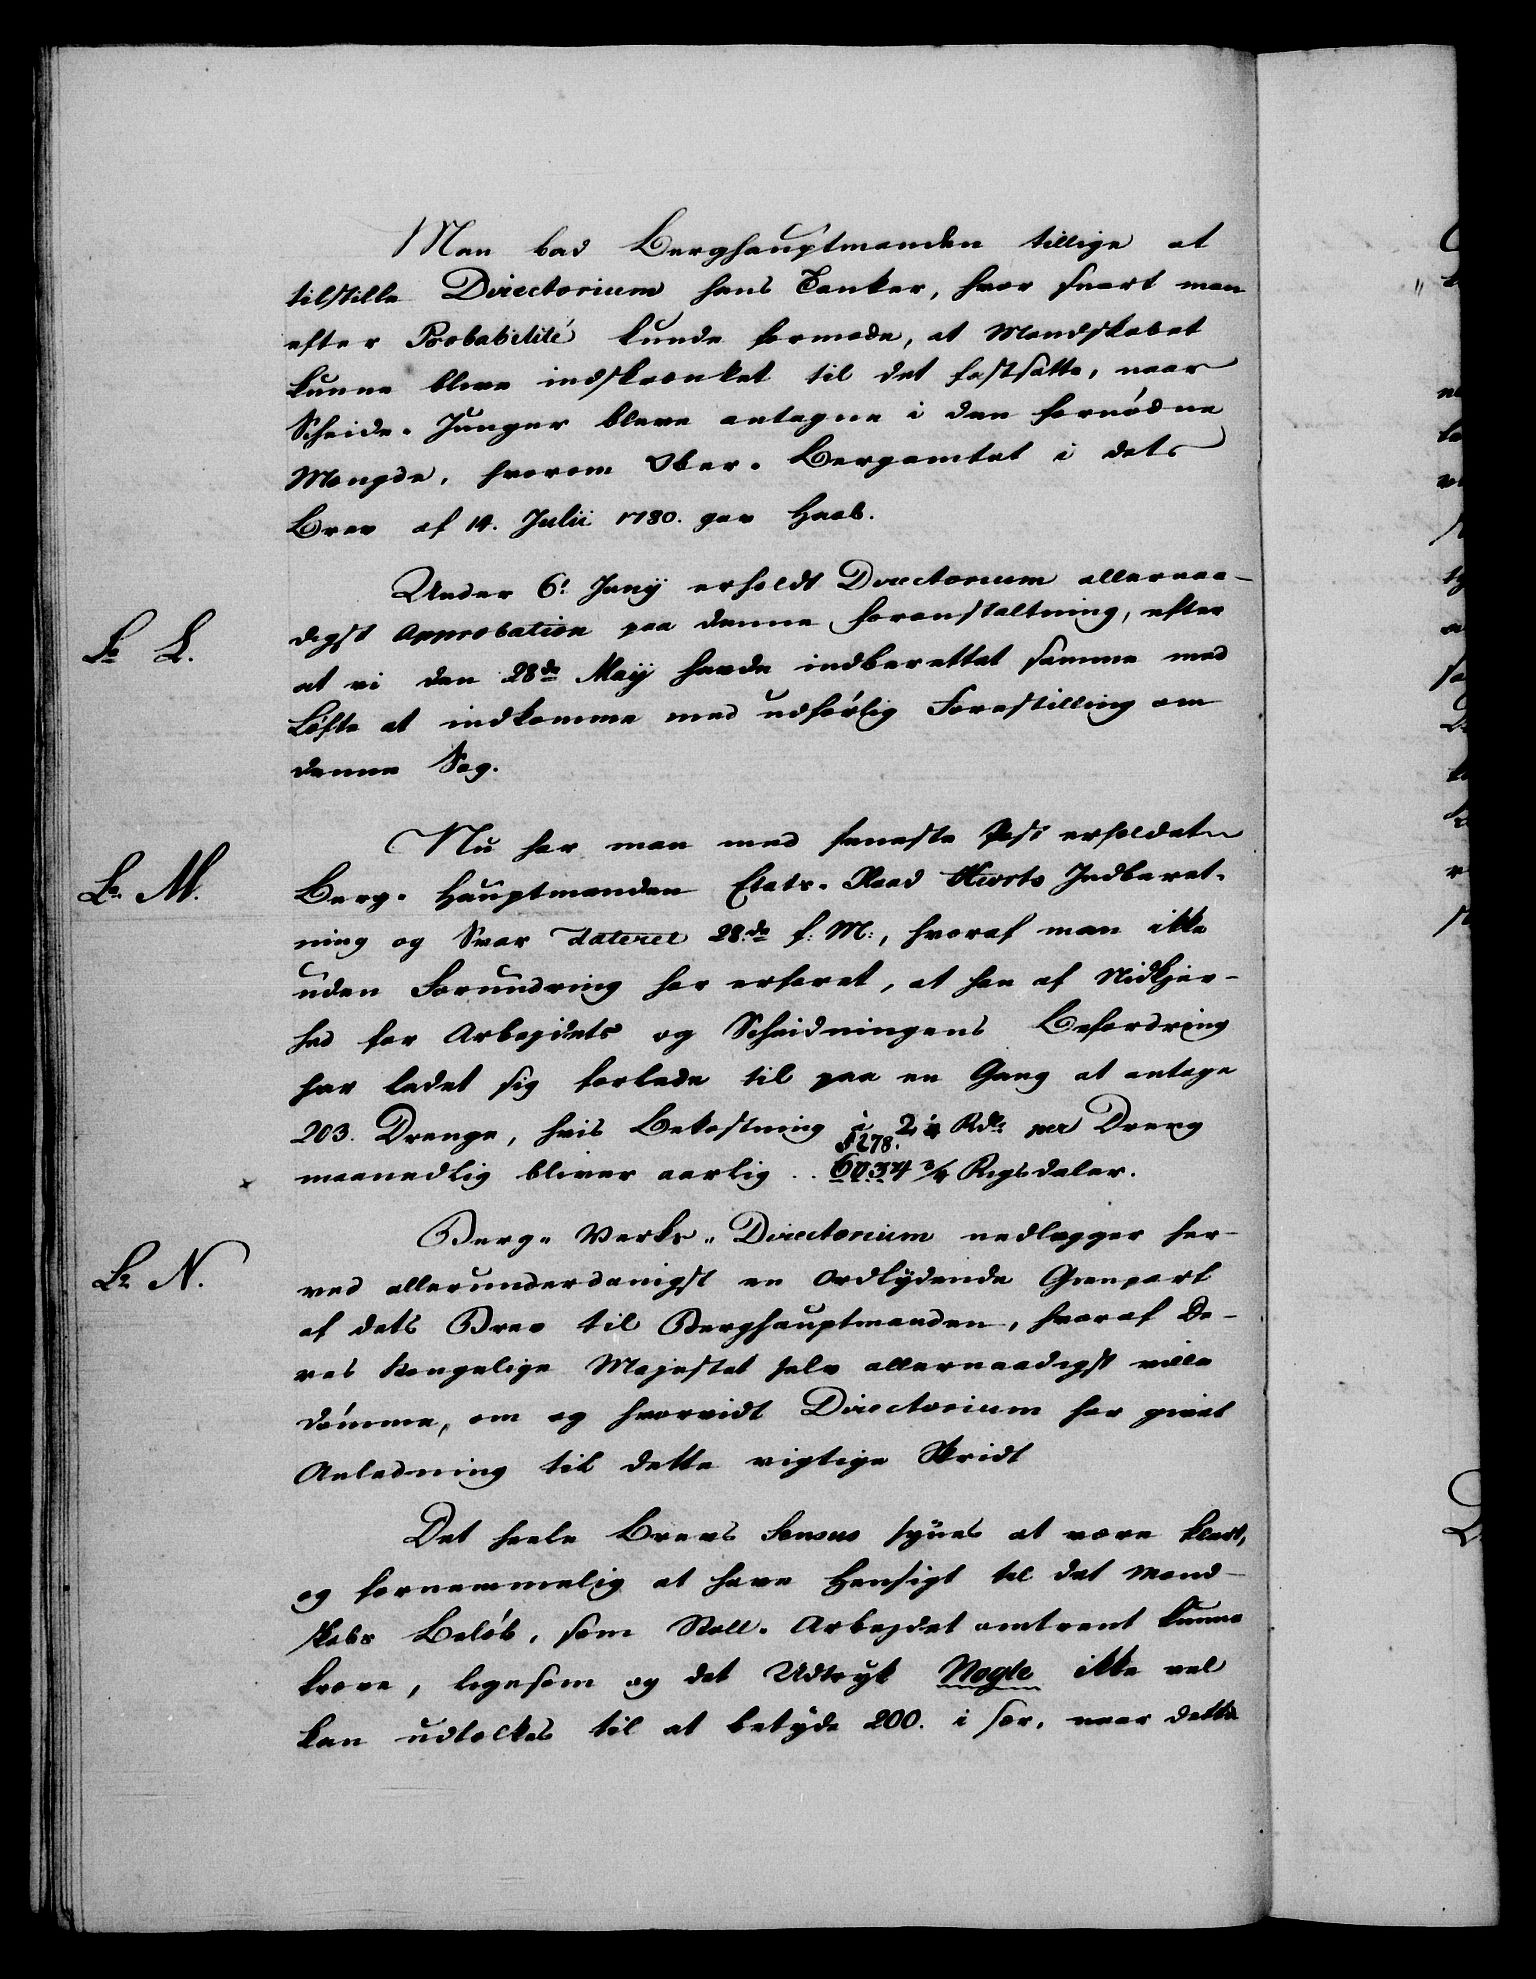 Man bad Berghauptmanden tillige at
tilstille Directorium hans Tanker, hvor snart man
efter Probabilité kunde formode, at Mandskabet
kunne blive indskrænket til det fastsatte, naar
Scheide-Junger bleve antagne i den fornødne
Mængde, hvorom Ober-Bergamtet i dets
Brev af 14. Julii 1780. gav Haab.
Under 6! Junij erholdt Directorium allernaa-
digst Approbation paa denne Foranstaltning, efter
Lr. L.
at vi den 28de Maij havde indberettet samme med
Løfte at indkomme med udførlig Forestilling om
denne Sag.
Nu har man med seneste Post erholdet
Lr. M.
Berg-Hauptmanden Etats-Raad Hiorts Indberet-
ning og Svar dateret 28de f: M:, hvoraf man ikke
uden Forundring har erfaret, at han af Nidkjer-
hed for Arbejdets og Scheidningens Befordring
har ladet sig forlede til paa en Gang at antage
203. Drenge, hvis Bekostning à 2 Rdr per Dreng
maanedlig bliver aarlig .. 5278. Rigsdaler.
Berg-Verks-Directorium nedlægger her-
Lr. N.
ved allerunderdanigst en ordlydende Gienpart
af dets Brev til Berghauptmanden, hvoraf De-
res Kongelige Majestet selv allernaadigst ville
dømme, om og hvorvidt Directorium har givet
Anledning til dette vigtige Skridt
Det heele Brevs Sensus synes at være klart,
og fornemmelig at have Hensigt til det Mand-
skabs Beløb, som Stoll-Arbejdet omtrent kunne
kræve, ligesom og det Udtryk Nogle ikke vel
kan udtolkes til at betyde 200. i sær, naar dette